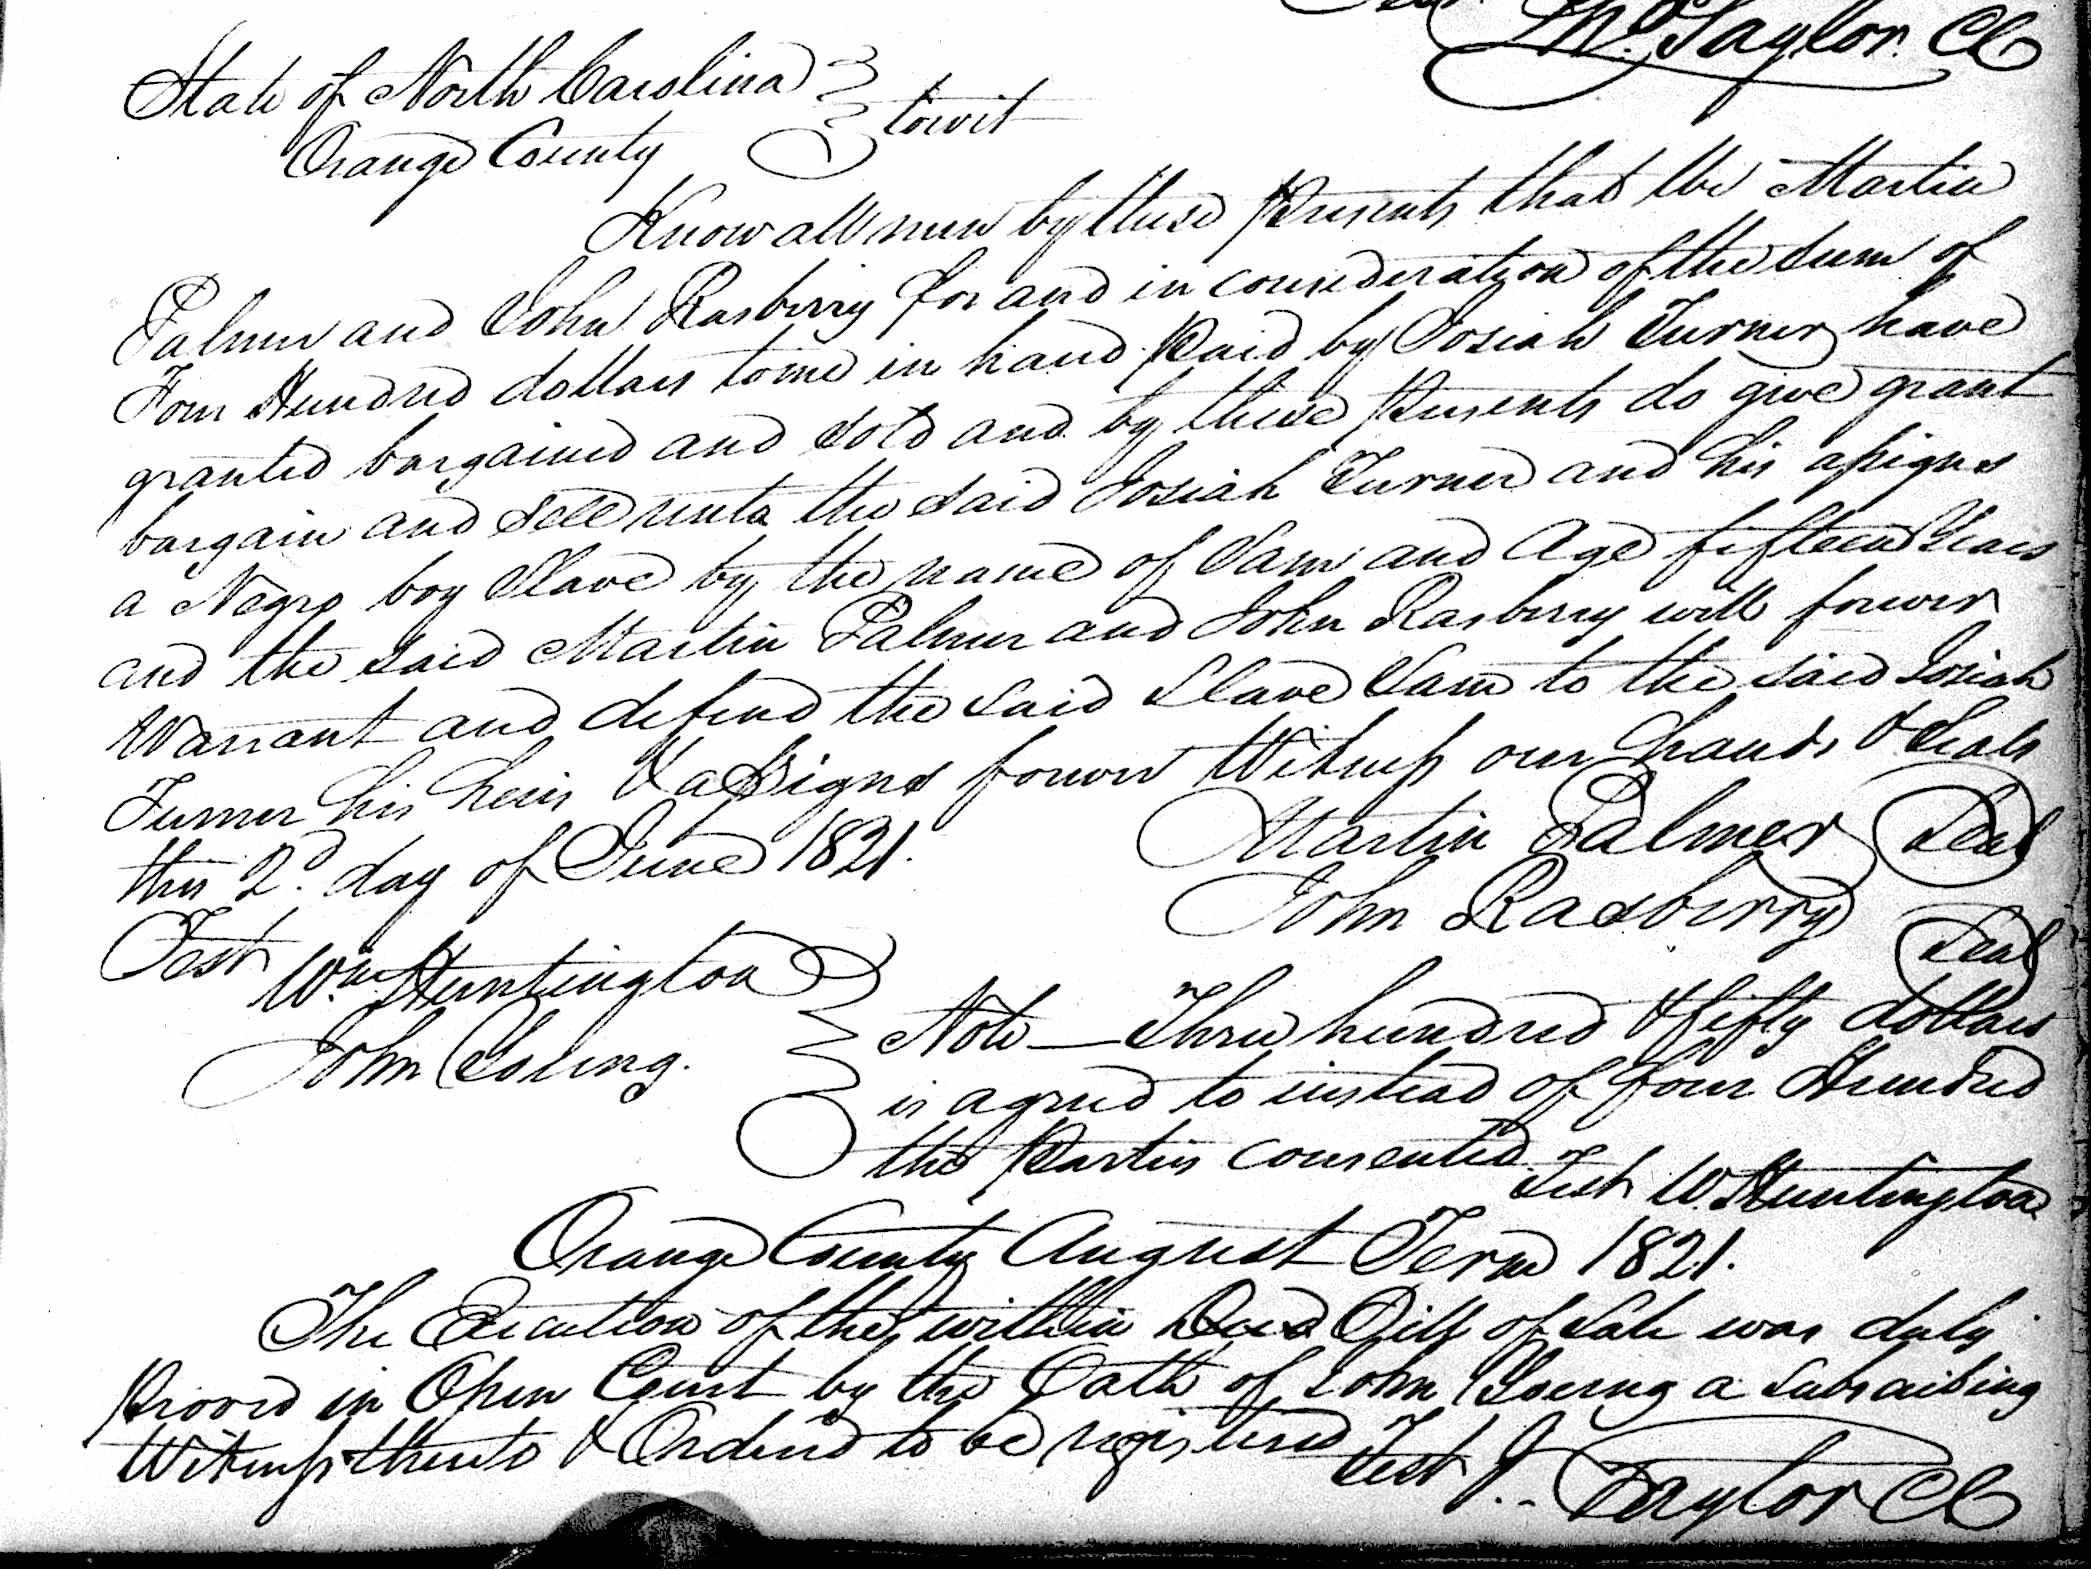 Test. Th. Taylor. CC
State of North Carolina
Orange County towit
Know all men by these presents that We Martin
Palmer and John Rasberry for and in consideration of the sum of
Four Hundred dollars to me in hand paid by Josiah Turner have
granted bargained and sold and by these presents do give grant
bargain and sell unto the said Josiah Turner and his assigns
a Negro boy Slave by the name of Sam and Age fifteen Years
and the said Martin Palmer and John Rasberry will forever
Warrant and defend the said Slave Sam to the said Josiah
Turner his heirs & assigns forever Witness our hands & Seals
this 2d. day of June 1821.
Martin Palmer Seal
John Rasberry Seal
Test
Wm Huntington
John Young.
Note — Three hundred & fifty dollars
is agreed to instead of four Hundred
the parties consented
Test W. Huntington
Orange County August Term 1821.
The Execution of the within Deed Bill of Sale was duly
proved in Open Court by the Oath of John Young a subscribing
Witness thereto & Ordered to be registered
Test J. Taylor CC